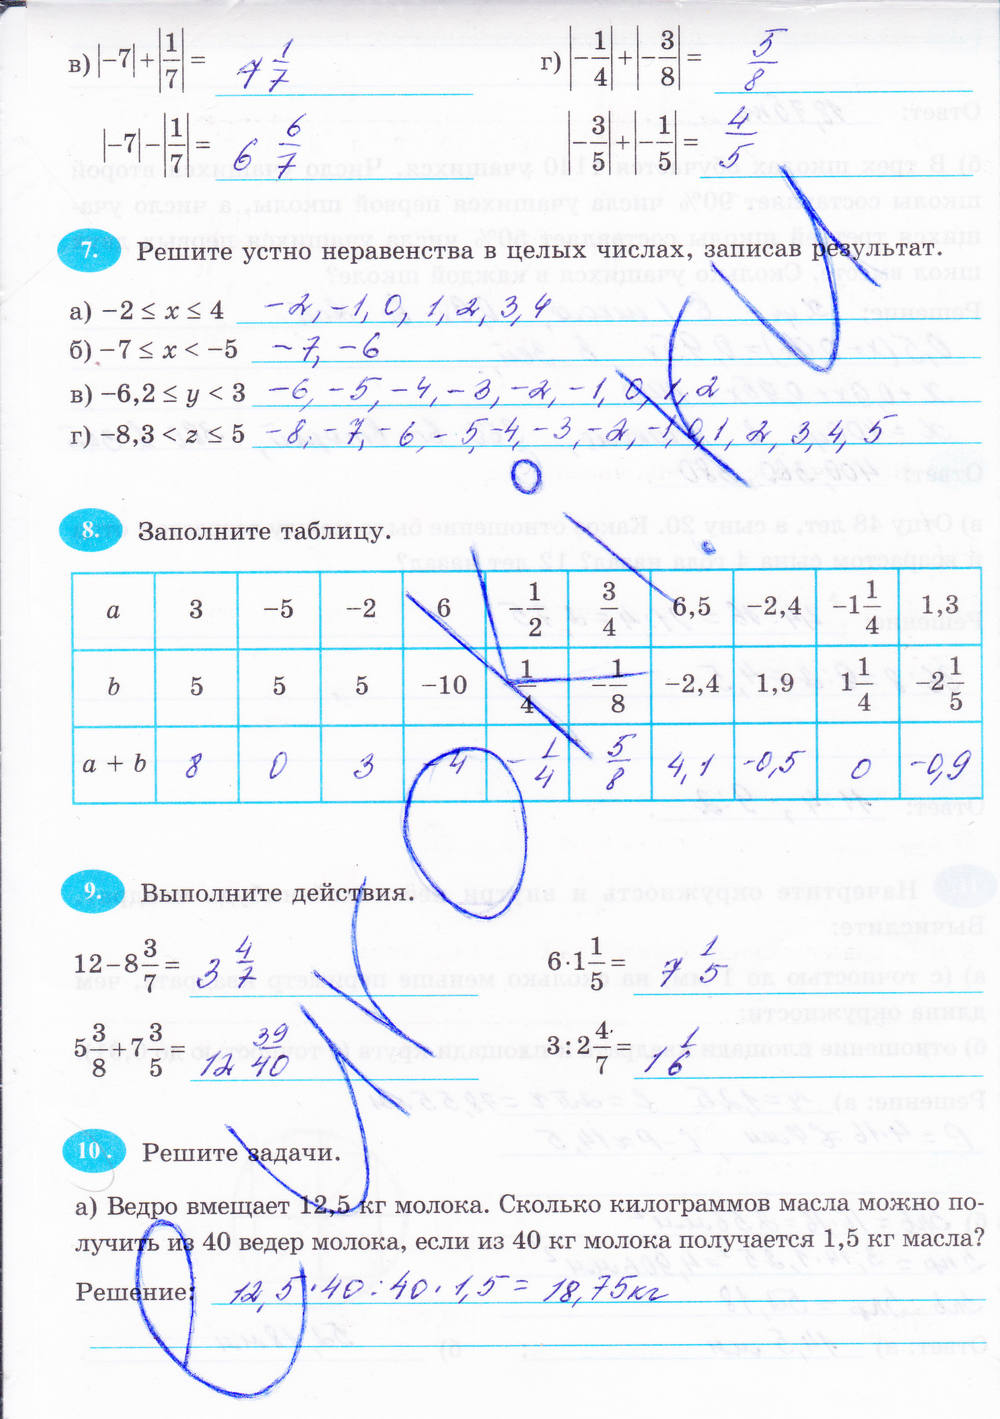 в) |−7| + |1/7| = 7 1/7
г) |−1/4| + |−3/8| = 5/8
|−7| − |1/7| = 6 6/7
|−3/5| + |−1/5| = 4/5
7. Решите устно неравенства в целых числах, записав результат.
а) −2 ≤ x ≤ 4 −2, −1, 0, 1, 2, 3, 4
б) −7 ≤ x < −5 −7, −6
в) −6,2 ≤ y < 3 −6, −5, −4, −3, −2, −1, 0, 1, 2
г) −8,3 < z ≤ 5 −8, −7, −6, −5, −4, −3, −2, −1, 0, 1, 2, 3, 4, 5
8. Заполните таблицу.
a 3 −5 −2 6 −1/2 3/4 6,5 −2,4 −1 1/4 1,3
b 5 5 5 −10 1/4 −1/8 −2,4 1,9 1 1/4 −2 1/5
a + b 8 0 3 −4 −1/4 5/8 4,1 −0,5 0 −0,9
9. Выполните действия.
12 − 8 3/7 = 3 4/7
6 · 1 1/5 = 7 1/5
5 3/8 + 7 3/5 = 12 39/40
3 : 2 4/7 = 1 1/6
10. Решите задачи.
а) Ведро вмещает 12,5 кг молока. Сколько килограммов масла можно по-
лучить из 40 ведер молока, если из 40 кг молока получается 1,5 кг масла?
Решение: 12,5 · 40 : 40 · 1,5 = 18,75 кг